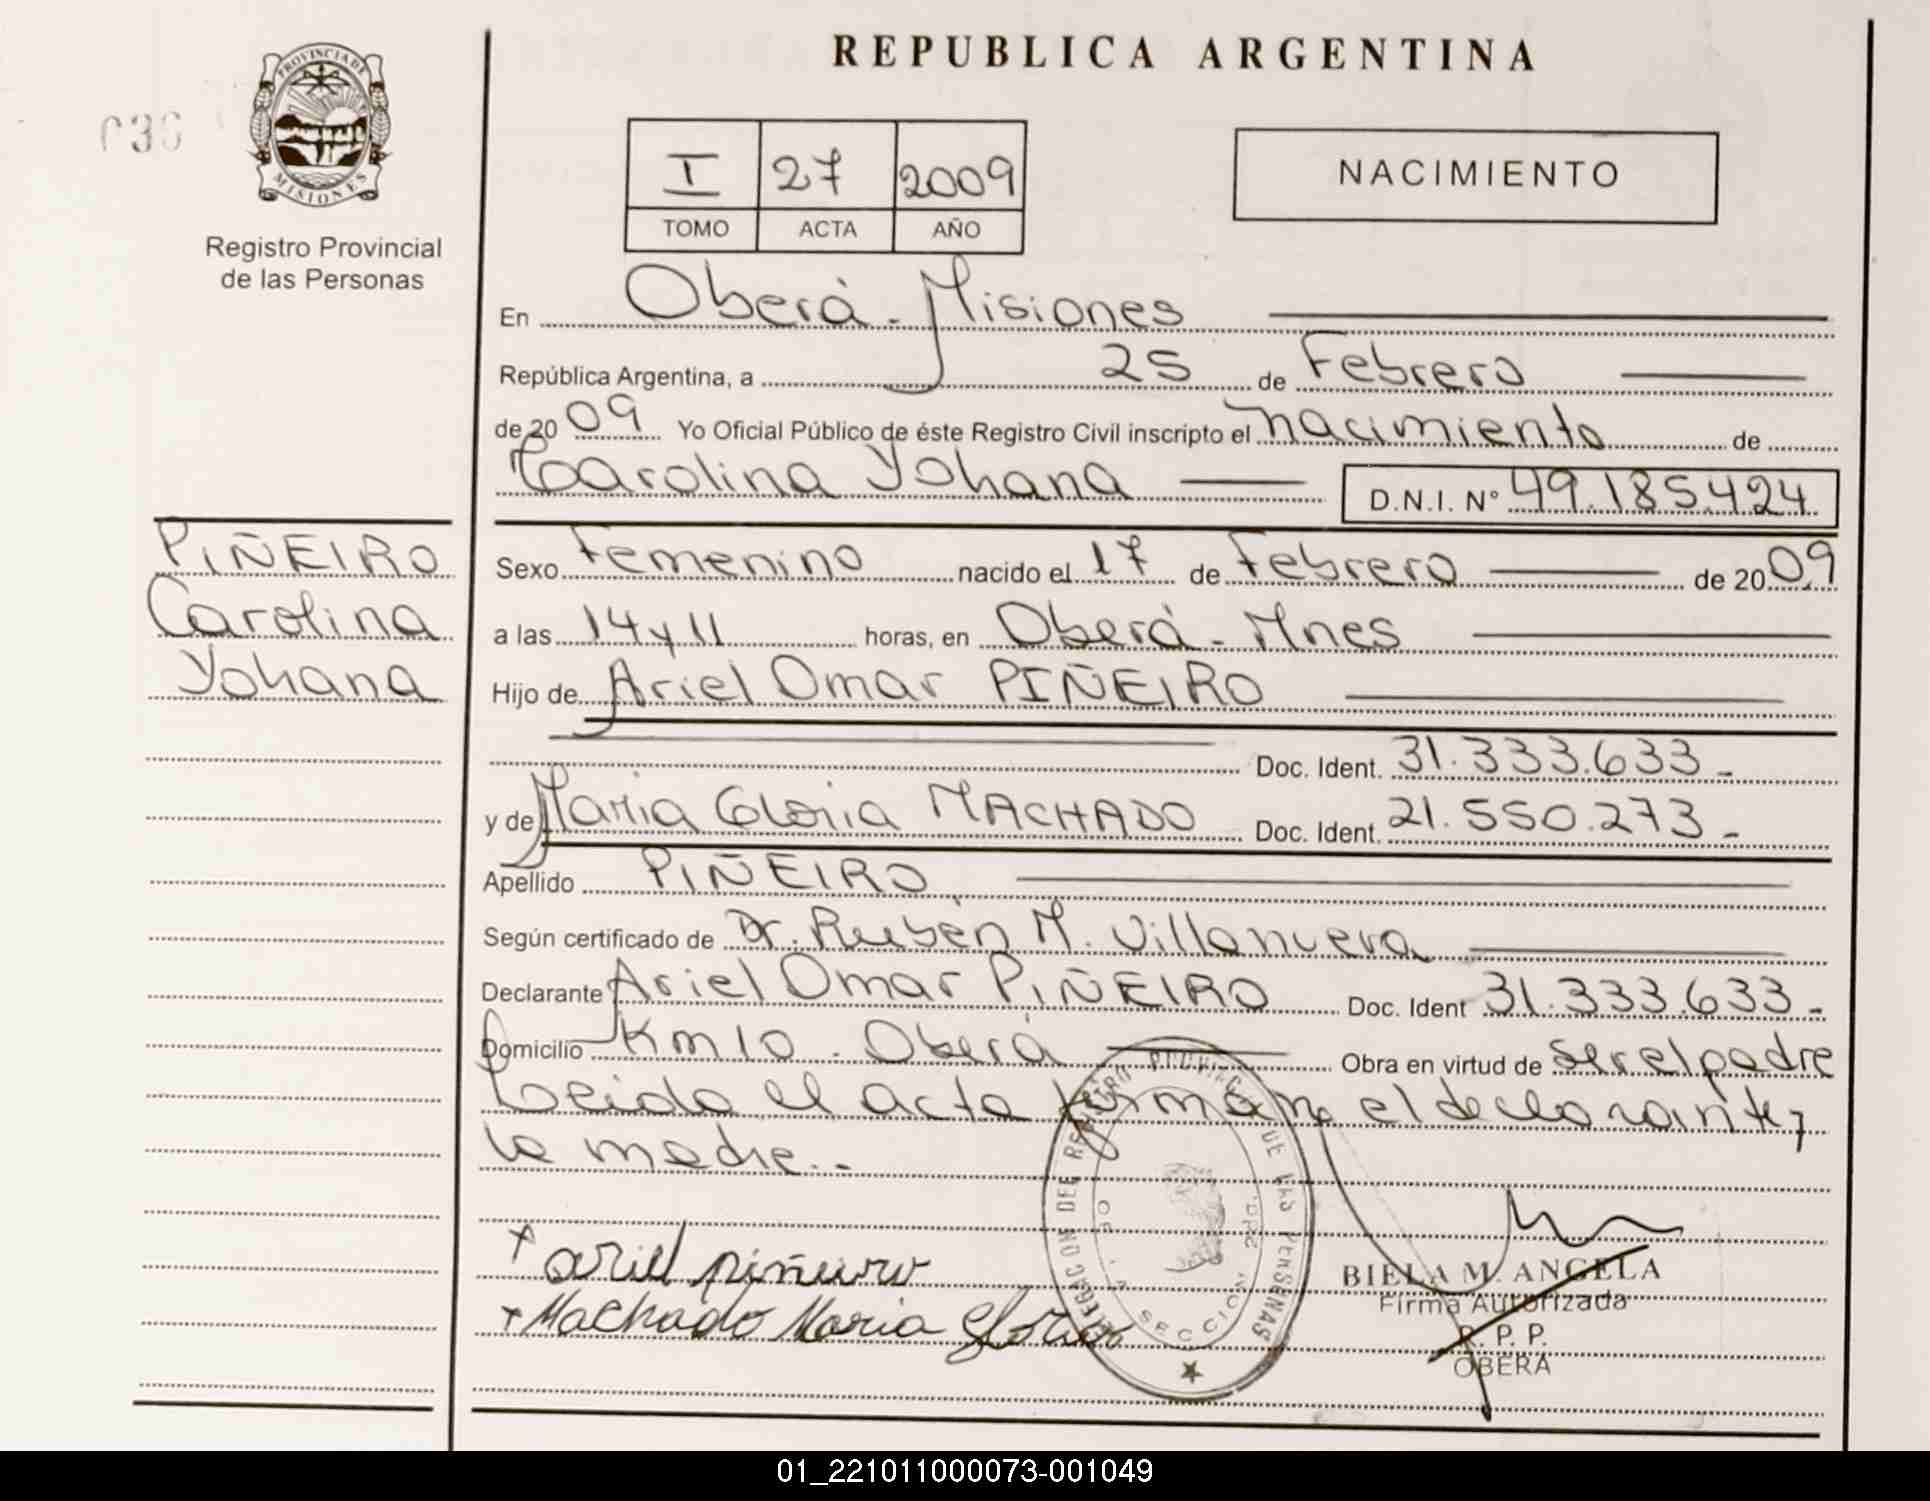 REPUBLICA ARGENTINA
PROVINCIA DE
MISIONES
Registro Provincial
de las Personas
I 27 2009
TOMO ACTA AÑO
NACIMIENTO
En Oberá - Misiones
República Argentina, a 25 de Febrero
de 2009 Yo Oficial Público de éste Registro Civil inscripto el nacimiento de
Carolina Yohana D.N.I. N° 49.185.424
PIÑEIRO
Carolina
Yohana
Sexo Femenino nacido el 17 de Febrero de 2009
a las 14 y 11 horas, en Oberá - Mnes
Hijo de Ariel Omar PIÑEIRO
Doc. Ident. 31.333.633 -
y de Maria Gloria MACHADO Doc. Ident. 21.550.273 -
Apellido PIÑEIRO
Según certificado de Dr. Rubén M. Villanueva
Declarante Ariel Omar PIÑEIRO Doc. Ident 31.333.633 -
Domicilio Km 10 - Oberá Obra en virtud de ser el padre
Leida el acta firman el declarante y
la madre. -
ariel piñeiro
Machado Maria Gloria
DELEGACION DEL REGISTRO PROVINCIAL DE LAS PERSONAS
SECCION
BIELA M. ANGELA
Firma Autorizada
R. P. P.
OBERA
01_221011000073-001049